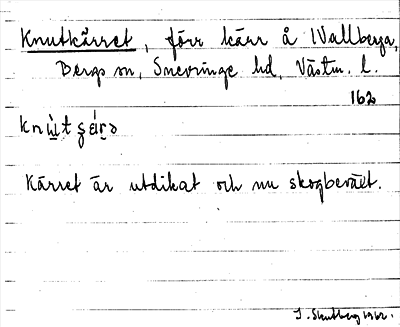 Knutkärret, förr kärr å Wallberga,
Bergs sn, Snevringe hd, Västm. l.
162
knùt ʂár̥ə
Kärret är utdikat och nu skogbeväxt.
J. Skutberg 1962.